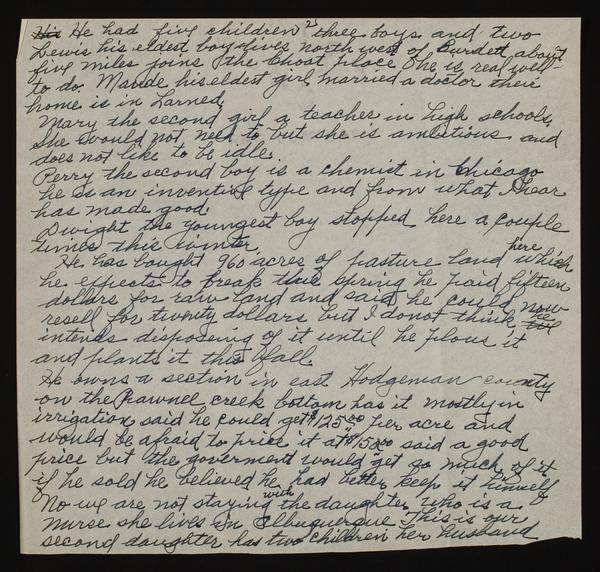 He had five children, three boys and two
Lewis his eldest boy lives north west of Burdett about
five miles joins the Choat place he is real well
to do. Maude his eldest girl married a doctor their
home is in Larned
Mary the second girl a teacher in high schools,
she would not need to but she is ambitious and
does not like to be idle.
Perry the second boy is a chemist in Chicago
he is an inventive type and from what I hear
has made good.
Dwight the youngest boy stopped here a couple
times this winter,
He has bought 960 acres of pasture land here which
he expects to break this spring he paid fifteen
dollars for raw land and said he could now
resell for twenty dollars but I do not think he
intends disposing of it until he plows it
and plants it this fall.
He owns a section in east Hodgeman county
on the Pawnee creek bottom has it mostly in
irrigation said he could get $125.00 per acre and
would be afraid to price it at $150.00 said a good
price but the goverment would get so much of it
if he sold he believed he had better keep it himself
No we are not staying with the daughter who is a
nurse she lives in Albuquerque This is our
second daughter has two children her husband